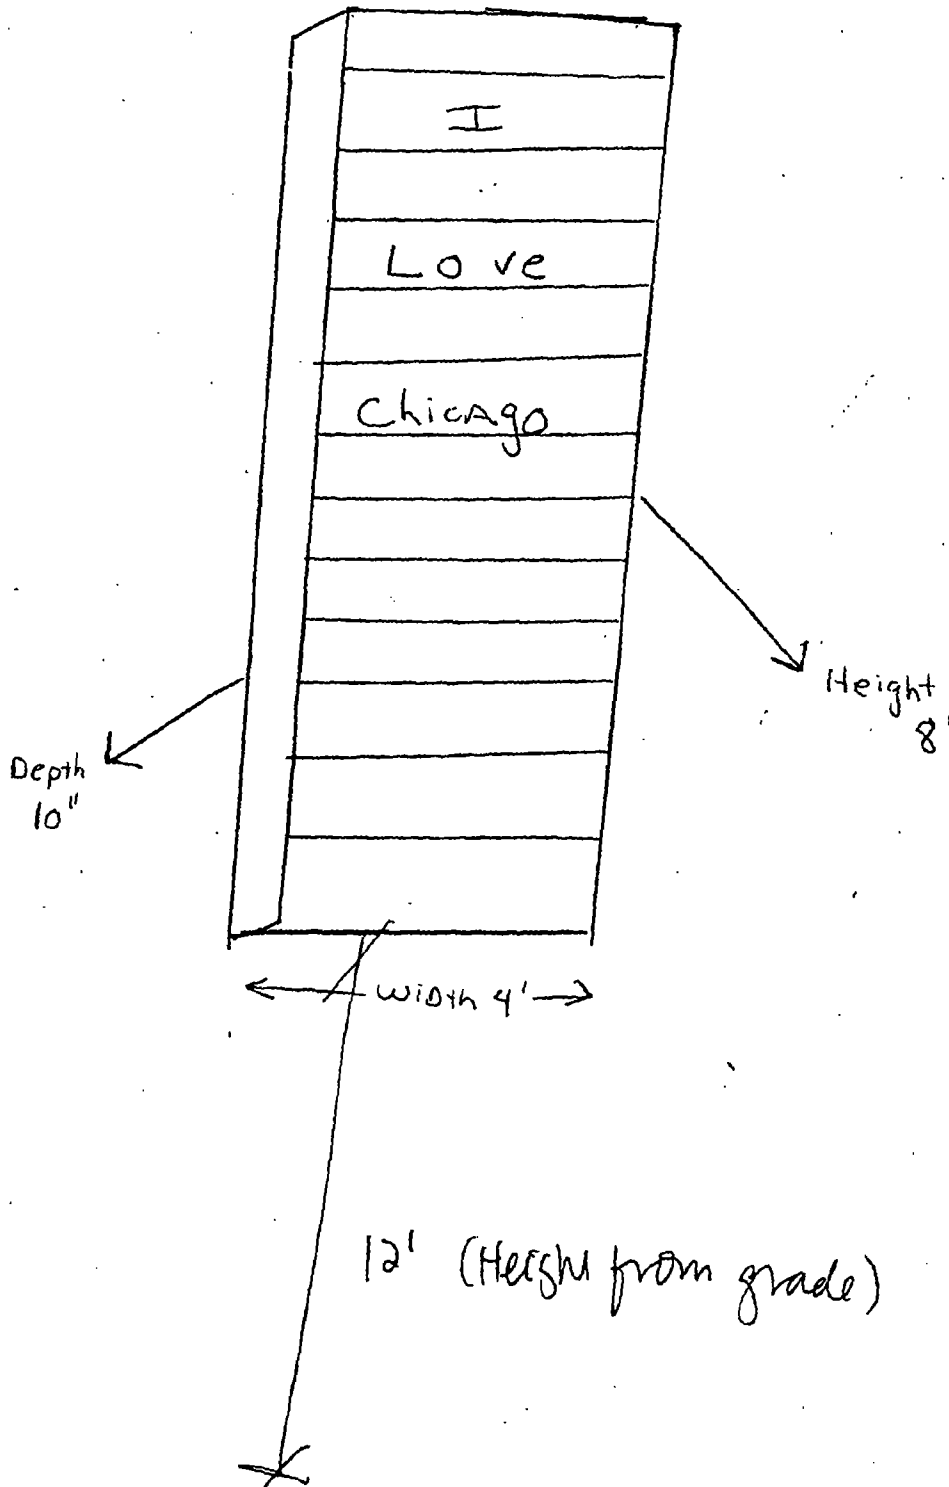 I
Love
Chicago
Height
8'
Depth
10"
Width 4'
12' (Height from grade)